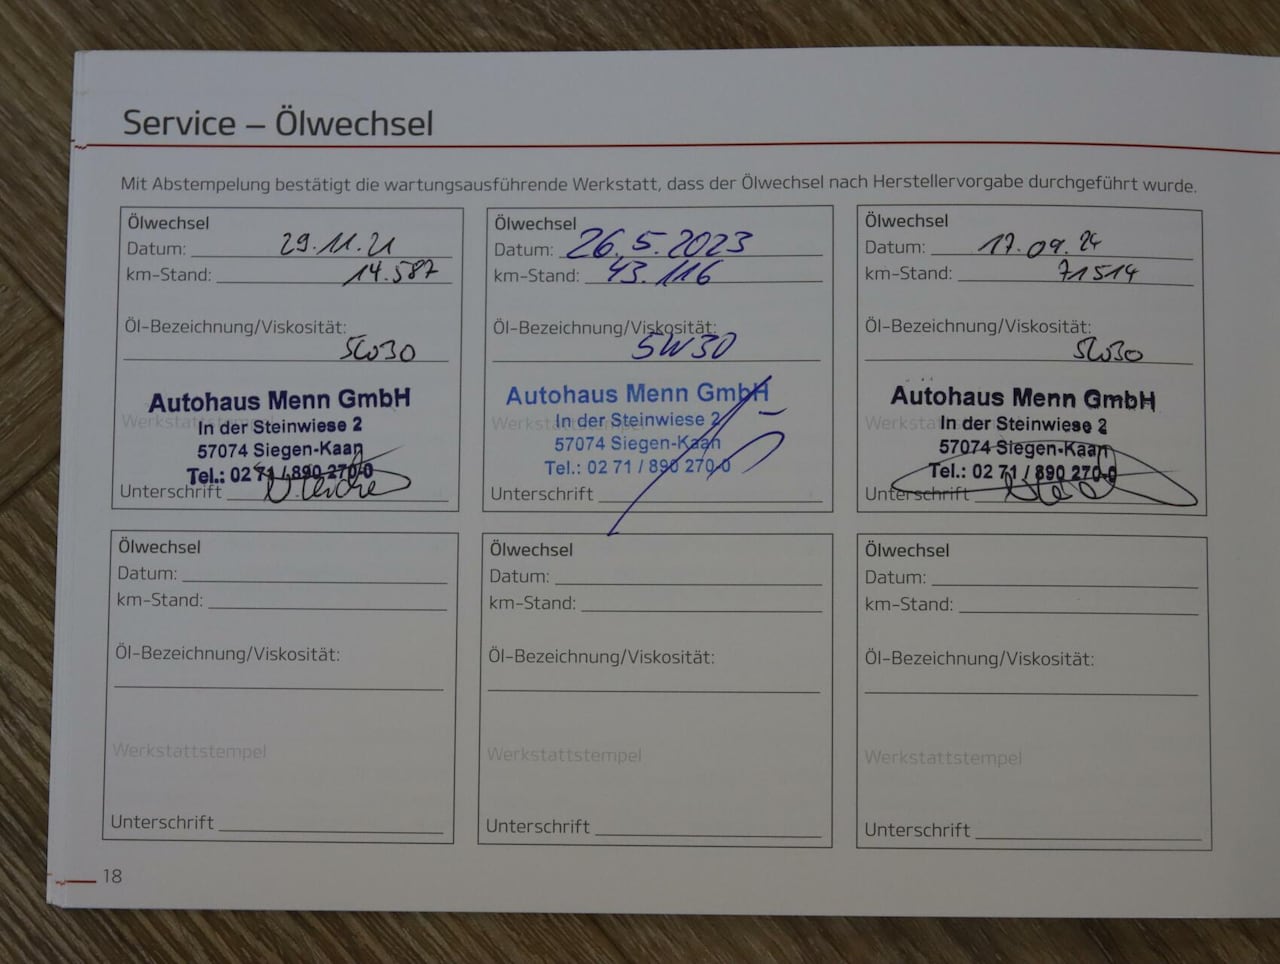 Service – Ölwechsel
Mit Abstempelung bestätigt die wartungsausführende Werkstatt, dass der Ölwechsel nach Herstellervorgabe durchgeführt wurde.
Ölwechsel
Datum: 29.11.21
km-Stand: 14.587
Öl-Bezeichnung/Viskosität:
5W30
Autohaus Menn GmbH
In der Steinwiese 2
57074 Siegen-Kaan
Tel.: 02 71 / 890 270-0
Unterschrift
Ölwechsel
Datum: 26.5.2023
km-Stand: 43.116
Öl-Bezeichnung/Viskosität:
5W30
Autohaus Menn GmbH
Werkstattstempel
In der Steinwiese 2
57074 Siegen-Kaan
Tel.: 02 71 / 890 270-0
Unterschrift
Ölwechsel
Datum: 17.09.24
km-Stand: 71514
Öl-Bezeichnung/Viskosität:
5W30
Autohaus Menn GmbH
In der Steinwiese 2
57074 Siegen-Kaan
Tel.: 02 71 / 890 270-0
Unterschrift
Ölwechsel
Datum:
km-Stand:
Öl-Bezeichnung/Viskosität:
Werkstattstempel
Unterschrift
Ölwechsel
Datum:
km-Stand:
Öl-Bezeichnung/Viskosität:
Werkstattstempel
Unterschrift
Ölwechsel
Datum:
km-Stand:
Öl-Bezeichnung/Viskosität:
Werkstattstempel
Unterschrift
18